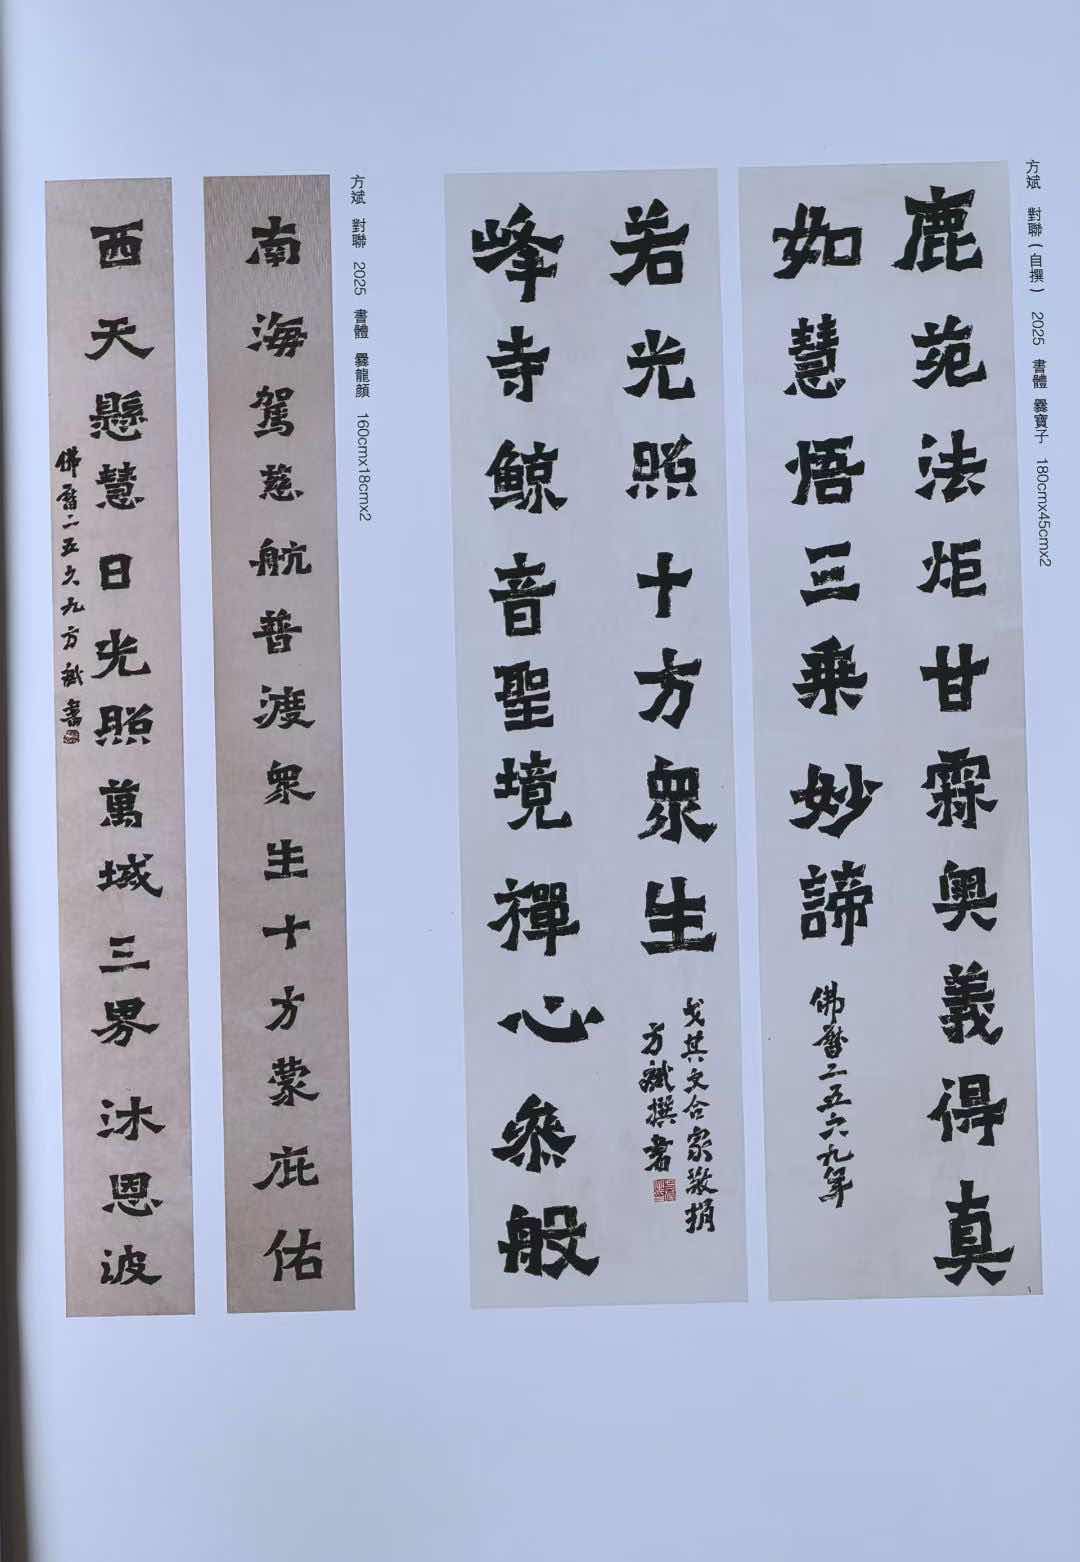 方斌 對聯(自撰) 2025 書體 爨寶子 180cmx45cmx2
鹿苑法炬甘霖奥義得真
如慧悟三乘妙諦
佛曆二五六九年
峰寺鯨音聖境禪心參般
若光照十方衆生
戈其文合家敬捐
方斌撰書
方斌 對聯 2025 書體 爨龍顔 160cmx18cmx2
南海駕慈航普渡衆生十方蒙庇佑
西天懸慧日光照萬城三界沐恩波
佛曆二五六九方斌書